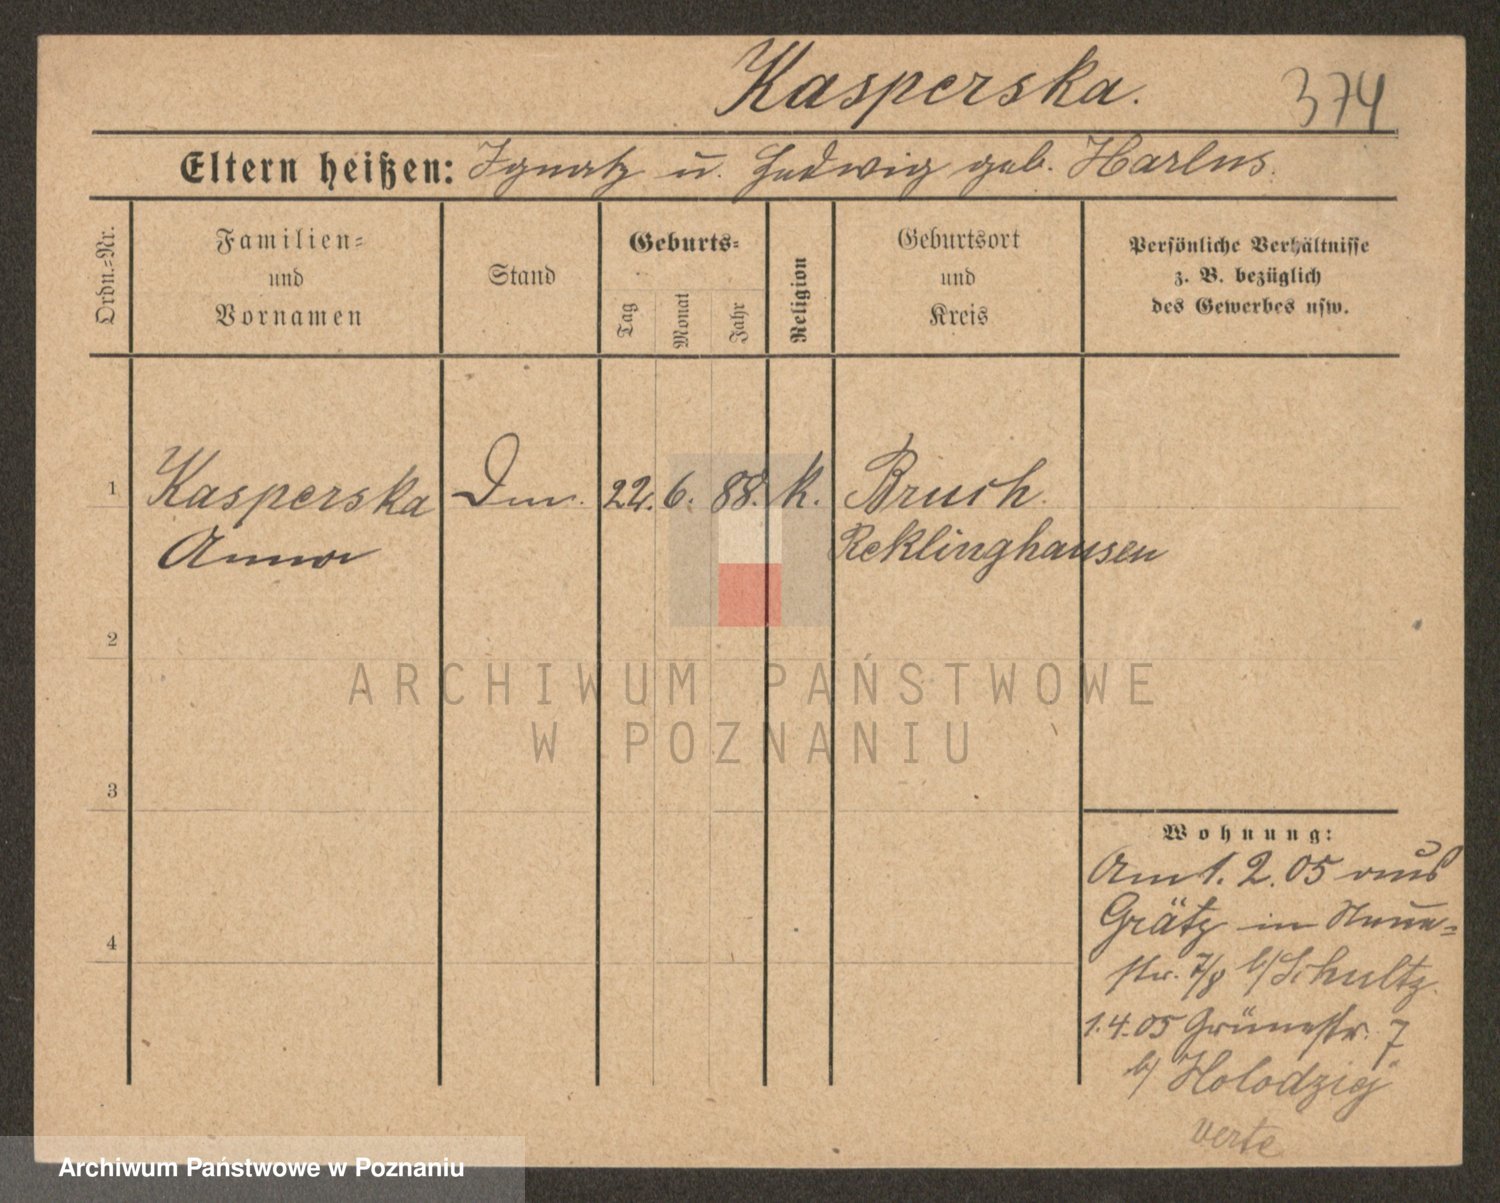 Kasperska.
374
Eltern heißen: Ignatz u. Hedwig geb. Harlus.
Ordn.-Nr.
Familien-
und
Vornamen
Stand
Geburts-
Tag
Monat
Jahr
Religion
Geburtsort
und
Kreis
Persönliche Verhältnisse
z. B. bezüglich
des Gewerbes usw.
1 Kasperska 22. 6. 88. k. Bruch.
Anna Reklinghausen
2
3
4
Wohnung:
Am 1. 2. 05 aus
Grätz in Neue-
str. 7/8 b/ Schultz.
1.4.05 Grünestr. 7
b/ Holodziej
verte
ARCHIWUM PAŃSTWOWE
W POZNANIU
Archiwum Państwowe w Poznaniu